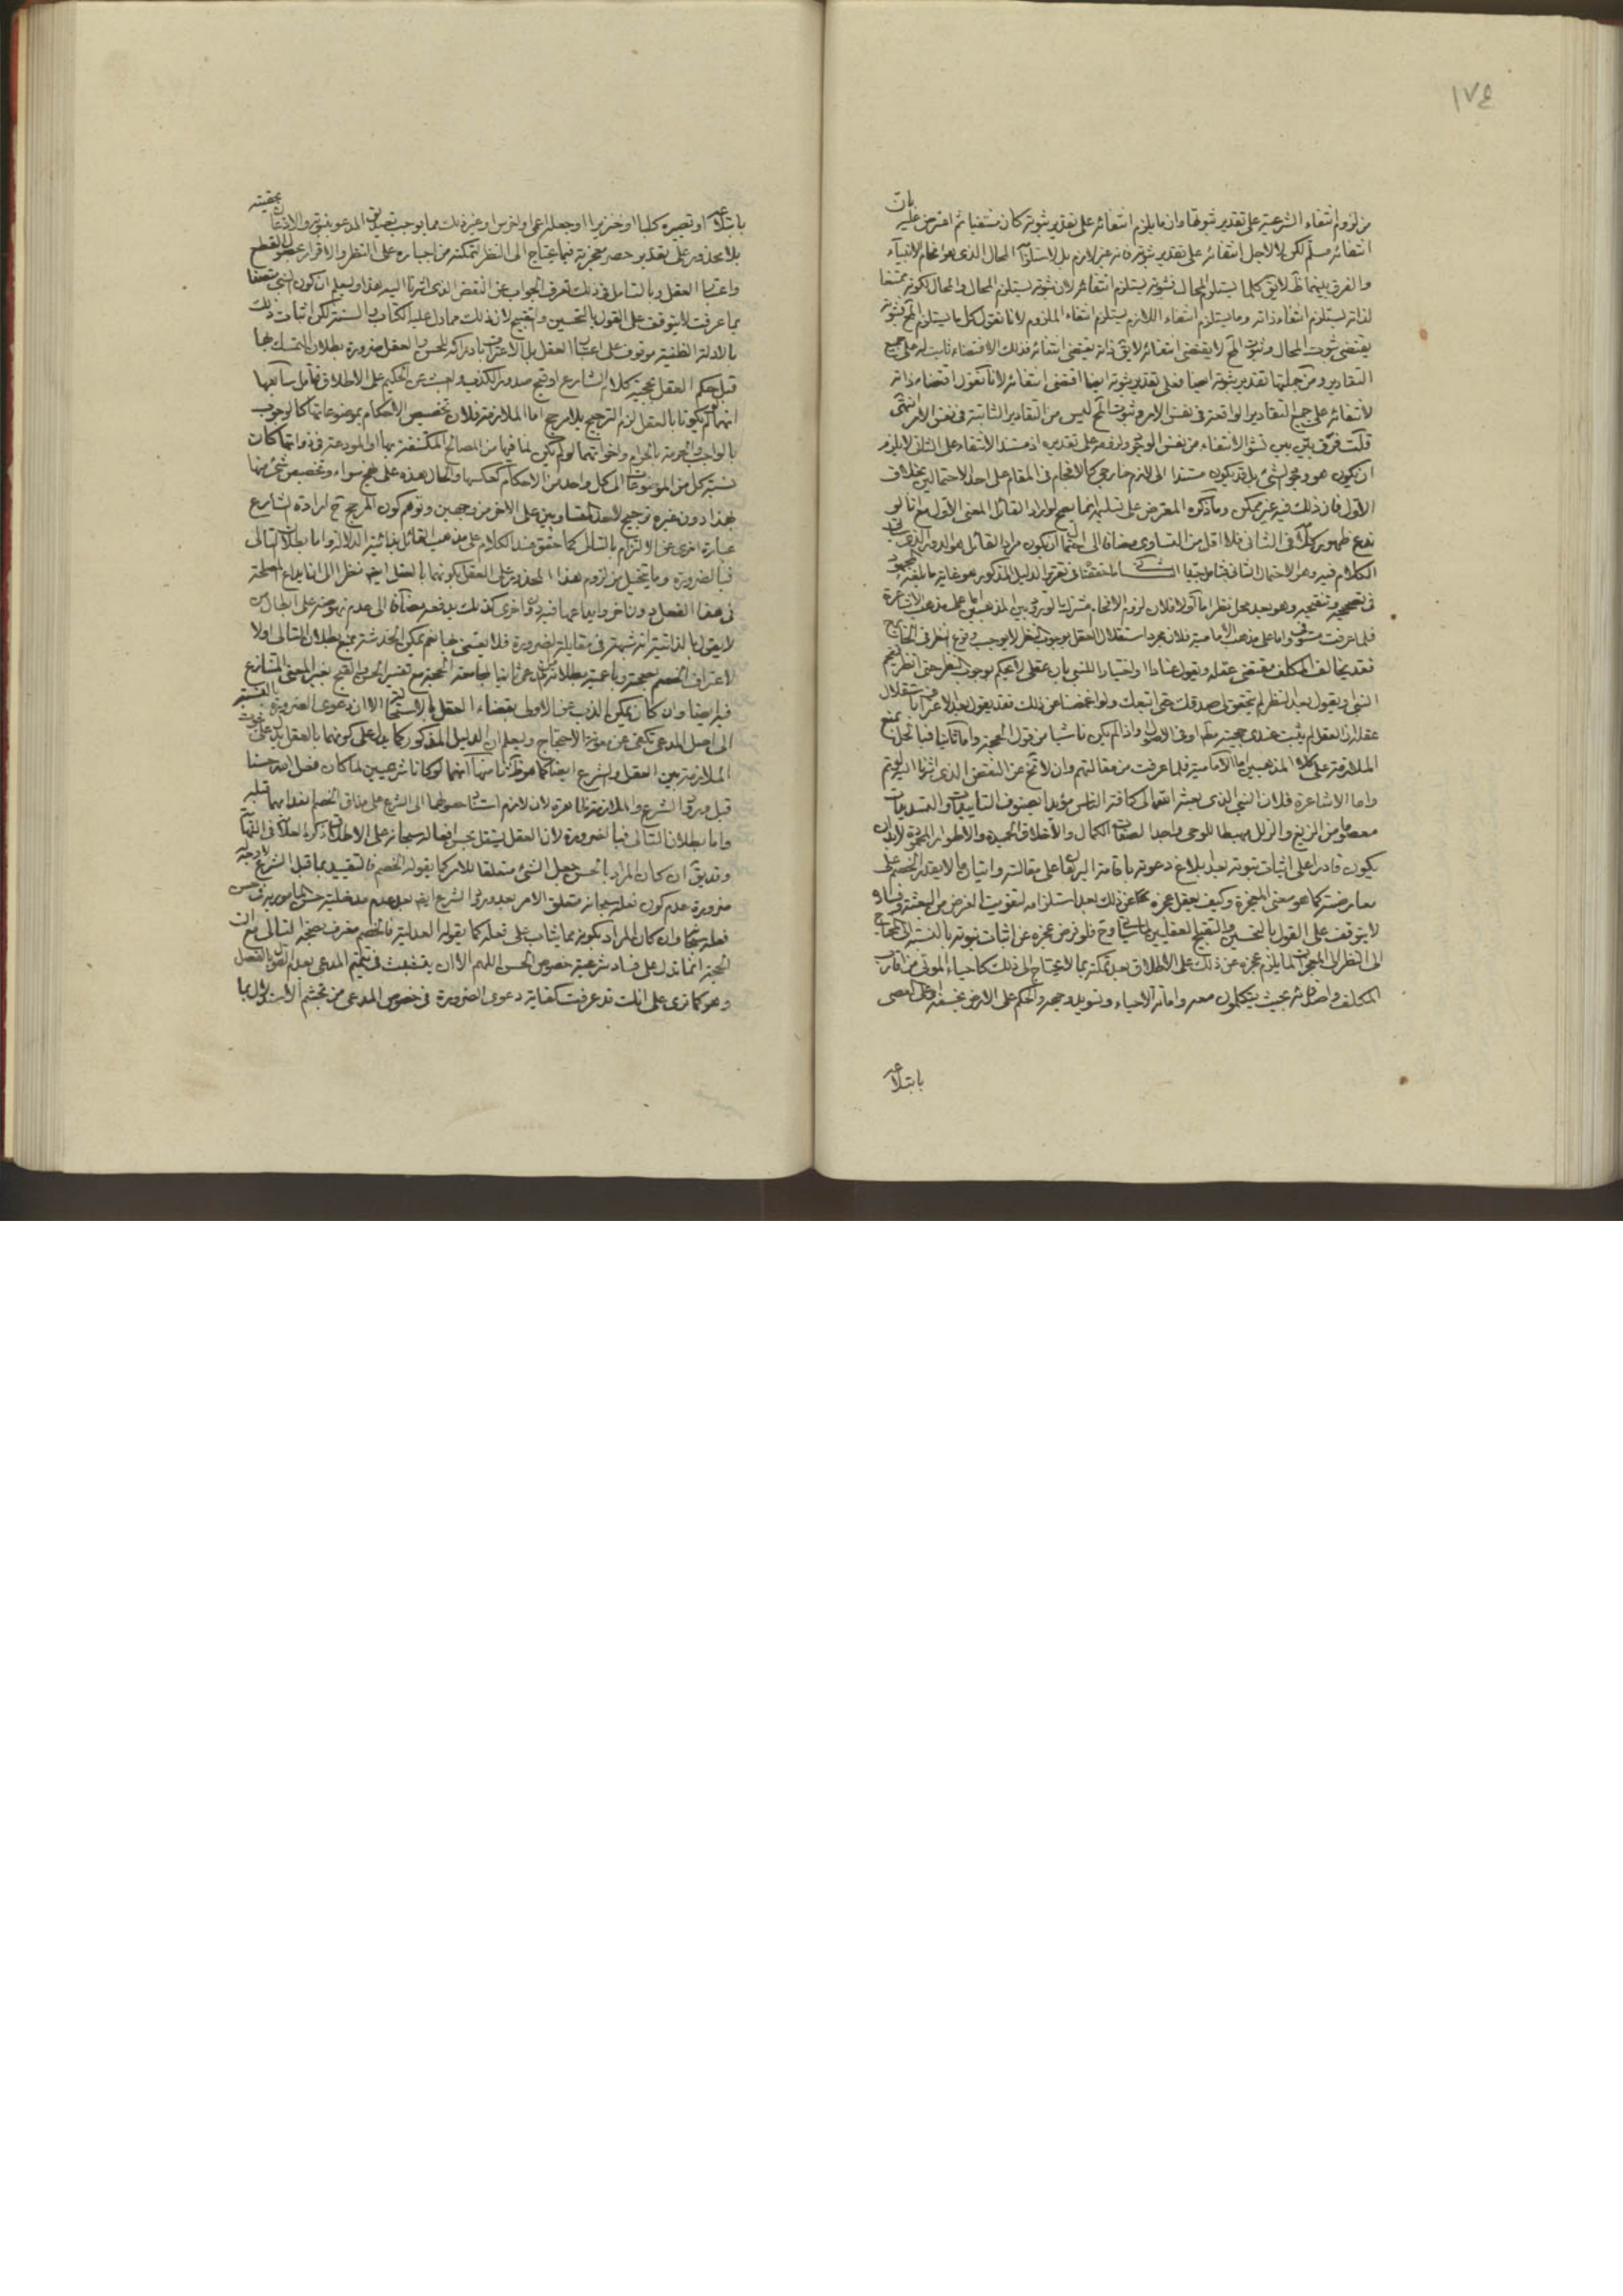 ١٧٤
من لزوم انتفاء الشرعية على تقدير ثبوتها وان ما يلزم انتفائه على تقدير ثبوته كان منتفيا ثم اعترض عليه بان
انتفائه مسلم لكن لا لاجل انتفائه على تقدير ثبوته فانه غير لازم بل لاستلزامه المحال الذى هو افحام الانبياء
والفرق بينهما ظ لا يق كلما يستلزم المحال فثبوته يستلزم انتفائه لان ثبوته يستلزم المحال والمحال لكونه ممتنعا
لذاته يستلزم انتفاء ذاته وما يستلزم انتفاء اللازم يستلزم انتفاء الملزوم لانا نقول كل ما يستلزم المح فثبوته
يقتضى ثبوت المحال وثبوت المح لا يقتضى انتفائه لا يق ذاته يقتضى انتفائه فذلك الاقتضاء ثابت له على جميع
التقادير ومن جملتها تقدير ثبوته ايضا فعلى تقدير ثبوته ايضا اقتضى انتفائه لانا نقول اقتضاء ذاته
لانتفائه على جميع التقادير الواقعة فى نفس الامر وثبوت المح ليس من التقادير الثابتة فى نفس الامر انتهى
قلت فرق بين بين نشو الانتفاء من نفس الوجود وفرضه على تقديره اذ مستند الانتفاء على الثانى لا يلزم
ان يكون هو وجود الشئ بل قد يكون مستندا الى لازم خارجى كالافحام فى المقام على احد الاحتمالين بخلاف
الاول فان ذلك فيه غير ممكن وما ذكره المعترض على تسليمه انما يصح لو اراد القائل المعنى الاول مع انه لو
ندع ظهور كلامه فى الثانى فلا اقل من التساوى مضافا الى احتمال ان يكون مراد القائل هو الدور الذى
الكلام فيه وهن الاحتمال الثانى فتامل جيدا ما حققنا فى تقرير الدليل المذكور هو غاية ما بلغه المجهود
فى تصحيحه وتنقيحه وهو بعد محل نظر اما اولا فلان لزوم الافحام مشترك الورود بين المذهبين اما على مذهب الاشاعرة
فلما عرفت واما على مذهب الامامية فلان مجرد استقلال العقل بوجوب النظر لا يوجب وقوع النظر فى الخارج
فقد يخالف المكلف مقتضى عقله ويقول عنادا واختيارا للنبى بان عقلى لا يحكم بوجوب النظر حتى انظر فيفحم
النبى او يقول بعد النظر لم يتحقق لى صدقك حتى اتبعك ولو اغمضنا عن ذلك فقد يقول بعد الاعتراف باستقلال
عقله ان العقل لم يثبت عندى حجيته واذا لم يكن ناشيا من قول الحجة واما ثانيا فبالحل بمنع
الملازمة على كلا المذهبين اما الامامية فلما عرفت من مقالتهم وان لا تخ عن النقض الذى اشرنا اليه
واما الاشاعرة فلان النبى الذى بعثه الله تعالى كافة الناس مؤيدا بصنوف التاييدات والتسديدات
معصوما من الزيغ والزلل مهبطا للوحى واجدا لصفات الكمال والاخلاق الحميدة والاطوار المحمودة لا بد ان
يكون قادرا على اثبات نبوته بعد ابلاغ دعوته باقامة البرهان على مقالته واتيان ما لا يقدر الخصم على
معارضته كما هو معنى المعجزة وكيف يعقل عجزه عن ذلك بعد استلزامه لتفويت الغرض من البعثة وفساده
لا يتوقف على القول بالتحسين والتقبيح العقليين وح فلو فرض عجزه عن اثبات نبوته بالنسبة الى المحتاج
الى النظر الى المعجزات لما يلزم عجزه عن ذلك على الاطلاق بعد تمكنه بما لا يحتاج الى ذلك كاحياء الموتى من اقارب
المكلف واصدقائه بحيث يتكلمون معه واماتة الاحياء وتسويد وجهه والحكم على الارض بخسفه وعلى العصى
بابتلاعه
بابتلاعه او تصييره كلبا او خنزيرا او جعله اعمى او اخرس او غير ذلك مما يوجب تصديق المدعو بنبوته والاذعان بحقيته
بلا محذور على تقدير حصر معجزته فيما يحتاج الى النظر لتمكنه من اجباره على النظر والاقرار
واعتبار العقل وبالتامل فى ذلك تعرف الجواب عن النقض الذى اشرنا اليه هذا وليعلم ان كون النبى متصفا
بما عرفت لا يتوقف على القول بالتحسين والتقبيح لان ذلك مما دل عليه الكتاب والسنة لكن اثبات ذلك
بالادلة الظنية موقوف على اعتبار العقل بل الاعتراف بادراكه للحسن والعقل ضرورة بطلان التمسك بهما
قبل حكم العقل بحجية كلام الشارع او قبح صدور الكذب والعبث عن الحكيم على الاطلاق فتامل سابعها
انهما لو لم يكونا بالعقل لزم الترجيح بلا مرجح اما الملازمة فلان تخصيص الاحكام بموضوعاتها كالوجوب
بالواجب والحرمة بالحرام واخواتهما لو لم يكن لما فيها من المصالح المكتنفة بها او المودعة فى ذواتها كانت
نسبة كل من الموضوعات الى كل واحد من الاحكام كعكسها والحال هذه على نهج سواء وتخصيص شئ منها
بهذا دون غيره ترجيح لاحد المتساويين على الاخر من وجهين وتوهم كون المرجح ح ارادة الشارع
عبارة اخرى عن الالتزام بالتالى كما حقق عند الكلام على مذهب القائل بذاتية الدلالة واما بطلان التالى
فبالضرورة وما يتخيل من لزوم هذا المحذور على العقل بكونهما بالعقل ايضا نظرا الى ان ايداع المصلحة
فى هذا الفعل دون اخر وايقاعها فيه دون اخرى كذلك يدفعه مضافا الى عدم نهوضه على ابطال من
لا يقول بالذاتية انه شبهة فى مقابلة الضرورة فلا يعتنى بها نعم يمكن الخدشة بمنع بطلان التالى اولا
لاعتراف الخصم بصحته وبامتناع بطلانه ثانيا لمجامعته الحجة مع تفسير الحسن والقبح بغير المعنى المتنازع
فيه ايضا وان كان يمكن الذب عن الاول بقضاء العقل بالاستحالة الا ان دعوى الضرورة بالنسبة
الى اصل المدعى تكفى عن مؤنة الاحتجاج وليعلم ان الدليل المذكور كما يدل على كونهما بالعقل يدل على ثبوت
الملازمة بين العقل والشرع ايضا كما هو ظ ثامنها انهما لو كانا شرعيين لما كان فعل الله حسنا
قبل ورود الشرع والملازمة ظاهرة لان لازم استناد حصولهما الى الشرع على مذاق الخصم انعدامهما قبله
واما بطلان التالى فبالضرورة لان العقل يستقل بحسن افعاله سبحانه على الاطلاق ذكره العلامة فى النهاية
وقد يق ان كان المراد بالحسن جعل الشئ متعلقا للامر كما يقوله الخصم فالتقييد بما قبل الشرع لا وجه له
ضرورة عدم كون فعله سبحانه متعلق الامر بعد ورود الشرع ايضا بعد عدم مدخلية حسن المامور به فى حسن
فعله سبحانه وان كان المراد كونه مما يثاب على فعله كما يقوله العدلية فالخصم معترف بصحة التالى مع ان
الحجة انما تدل على فساد شرعية خصوص الحسن اللهم الا ان يتشبث فى تتميم المدعى بعدم القول بالفصل
وهو كما ترى على انك قد عرفت كفاية دعوى الضرورة فى خصوص المدعى من تجشم الاستدلال بما